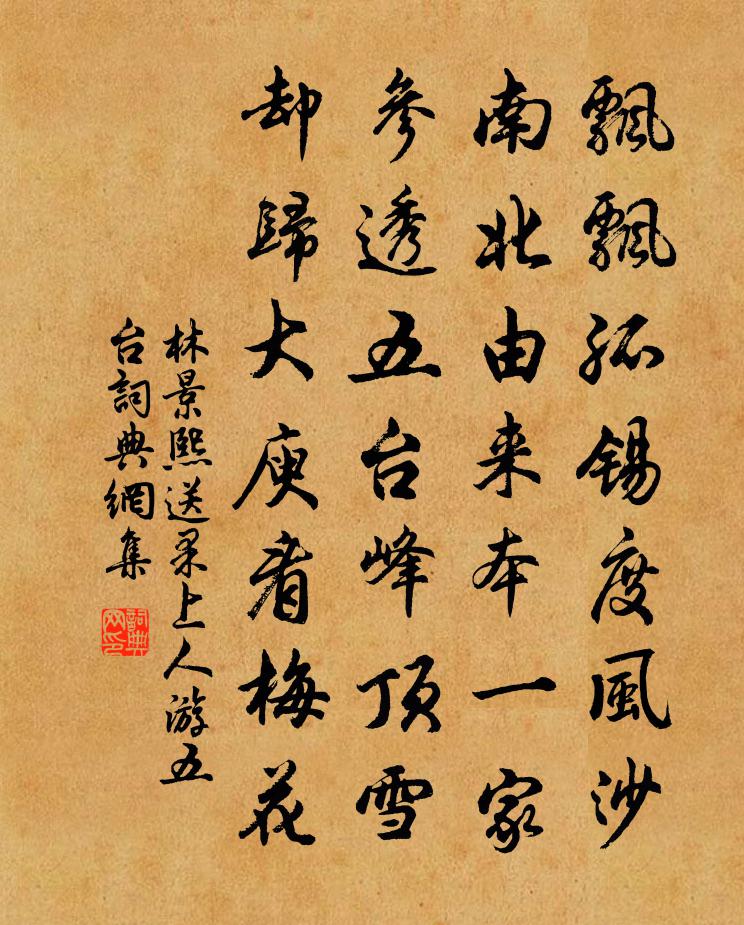 飄飄孤錫度風沙
南北由来本一家
參透五台峰頂雪
却歸大庾看梅花
林景熙送果上人游五
台詞典網集
詞典
网印